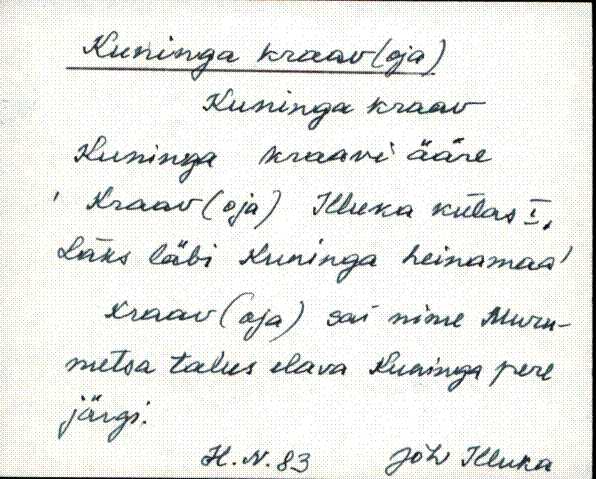 Kuninga kraav (oja)
Kuninga kraav
Kuninga kraavi ääre
' Kraav (oja) Illuka külas I,
Läks läbi Kuninga heinamaa'
Kraav (oja) sai nime Muru-
metsa talus elava Kuninga pere
järgi.
H. N. 83 Jõh Illuka